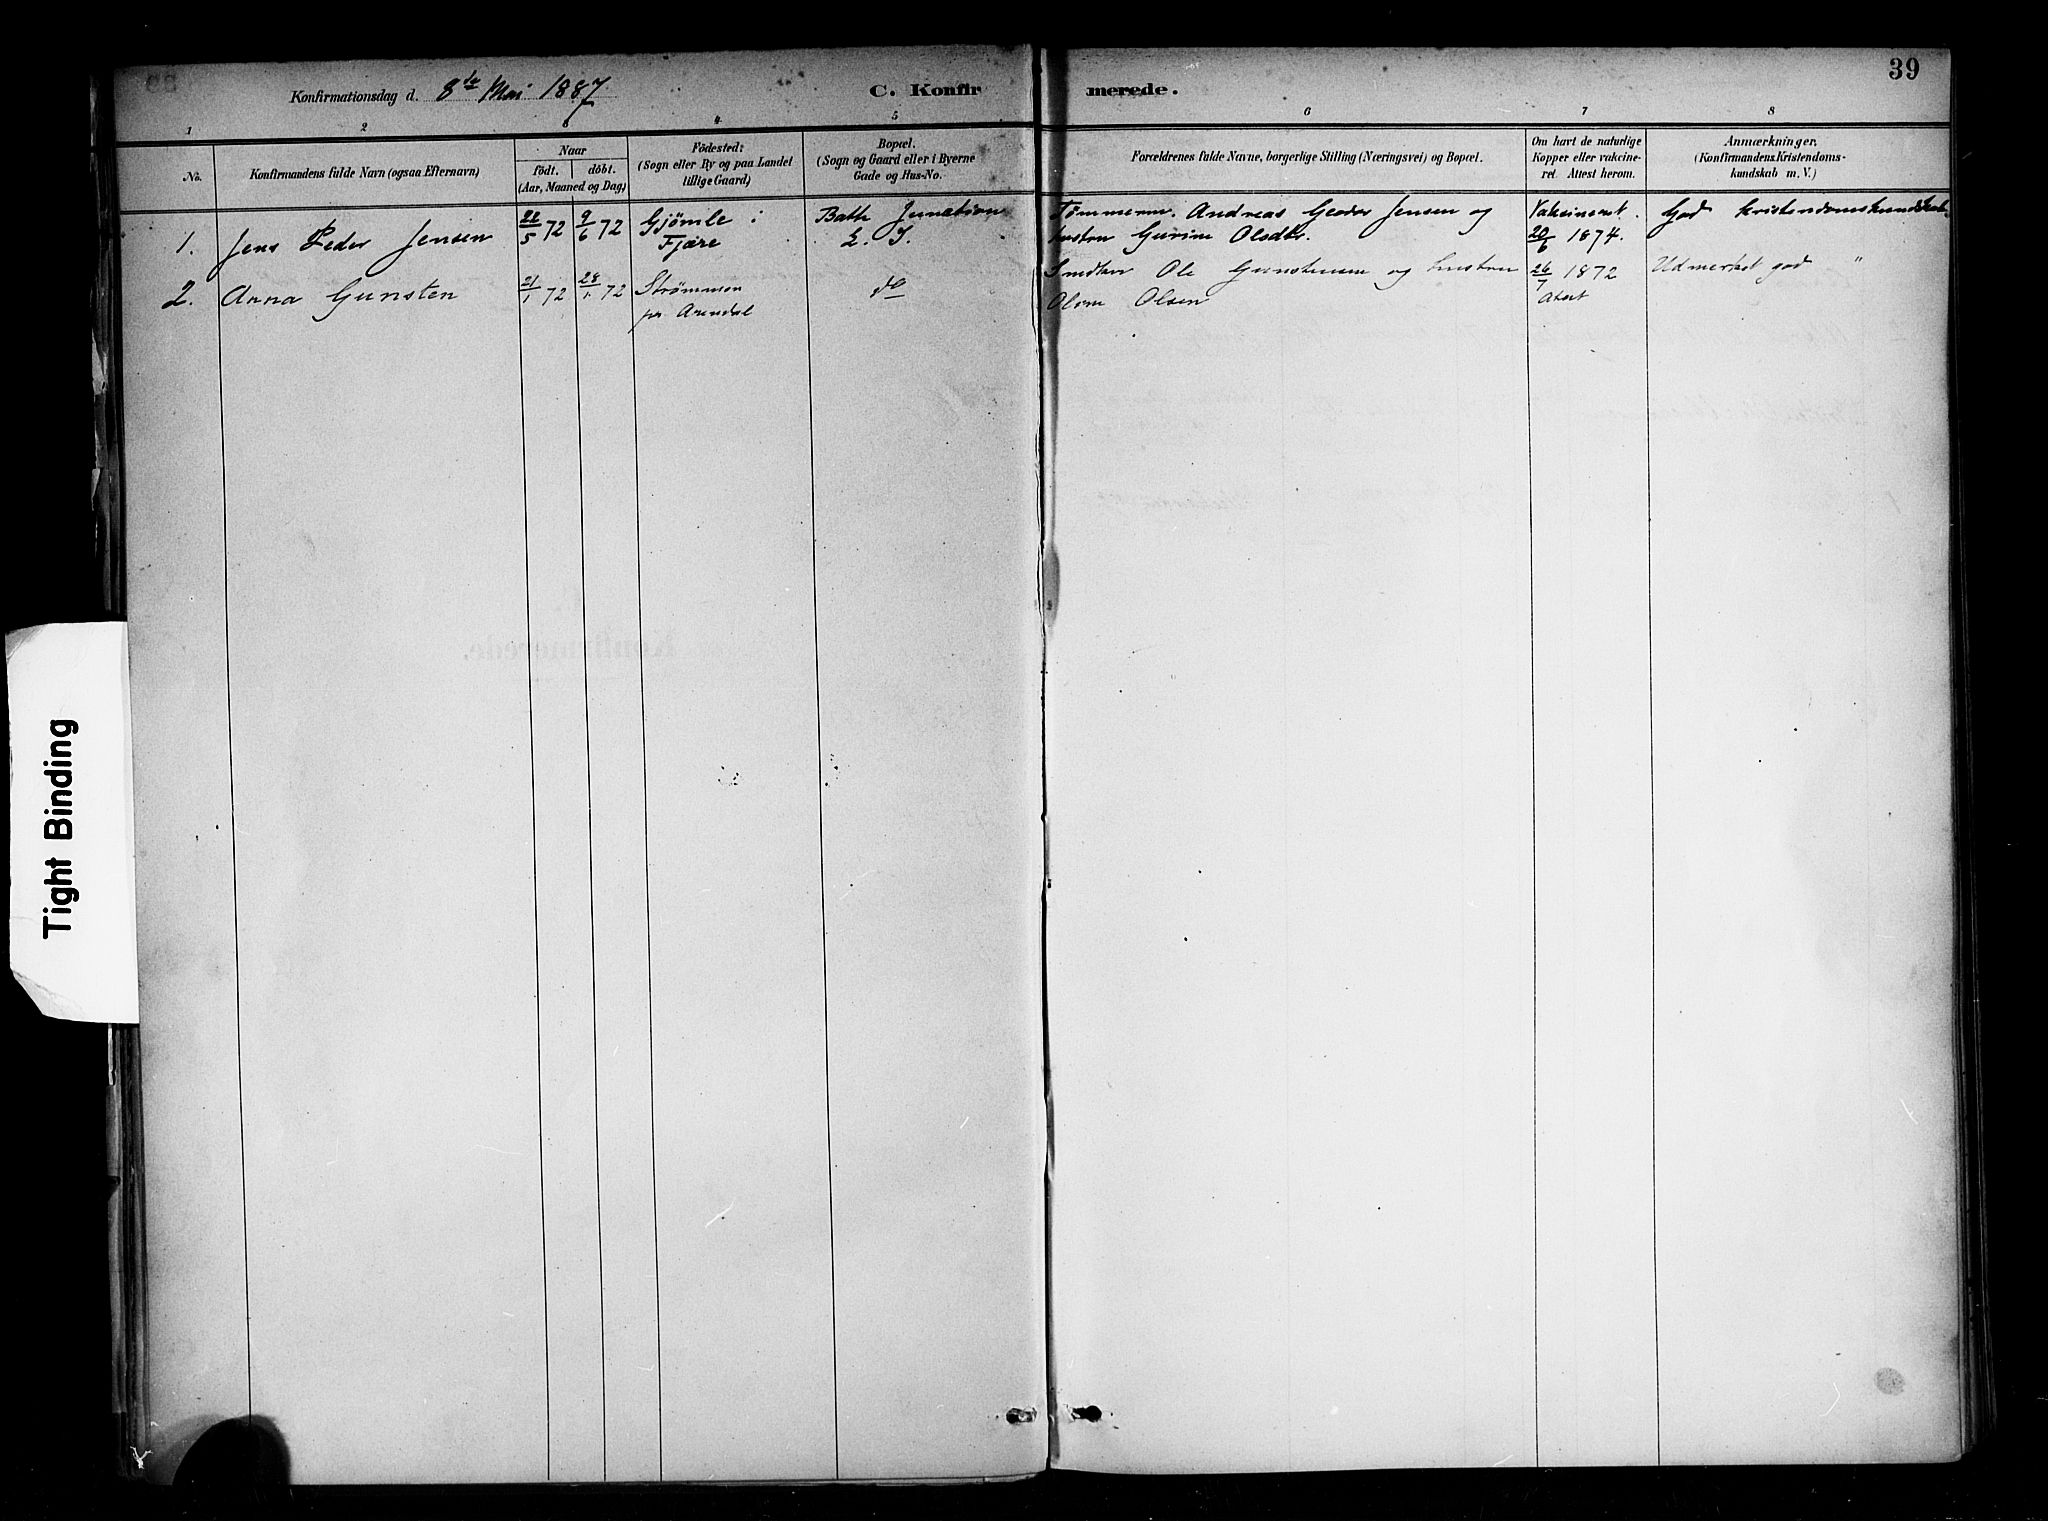 39
Konfirmationsdag d. 8de Mai 1887.
C. Konfir merede.
1 2 3 4 5 6 7 8
No.
Konfirmandens fulde Navn (ogsaa Efternavn)
Naar
födt. döbt.
(Aar, Maaned og Dag)
Födested:
(Sogn eller By og paa Landet
tillige Gaard)
Bopæl.
(Sogn og Gaard eller i Byerne
Gade og Hus-No.
Forældrenes fulde Navne, borgerlige Stilling (Næringsvei) og Bopæl.
Om havt de naturlige
Kopper eller vakcine-
ret. Attest herom.
Anmærkninger.
(Konfirmandens Kristendoms-
kundskab m. V.)
1. Jens Peder Jensen
5 72
9/6 72
Gjömle i
Fjære
Bath Junction
L. I.
Tømmerm. Andreas Jensen og
hustru Gurine Olsdtr.
Vakcineret.
20/6 1874.
God kristendomskundskab
2. Anna Gunsten
21/1 72
28/1 72
Strömmen
pr Arendal
do
Ole og hustru
Olsen
26/7 1872
Attest
Udmerket god "
Tight Binding